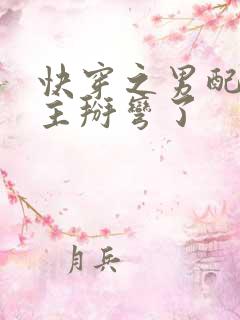 快穿之男配
主掰彎了
月兵